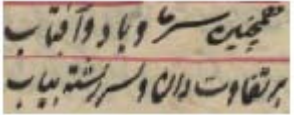 همچنین سرما و باد و آفتاب
بر تفاوت دان و سررشته بیاب